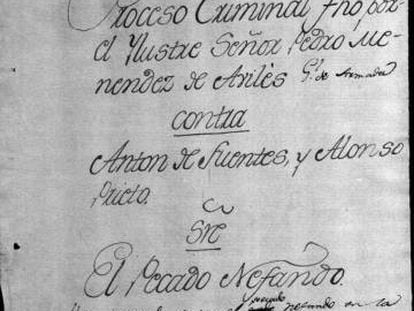 Proceso Criminal fho por
el Ylustre Señor Pedro Me-
nendez de Aviles Gl. de Armada
contra
Anton de Fuentes, y Alonso
Prieto.
Sre
El Pecado Nefando.
y pecado
nefando en la